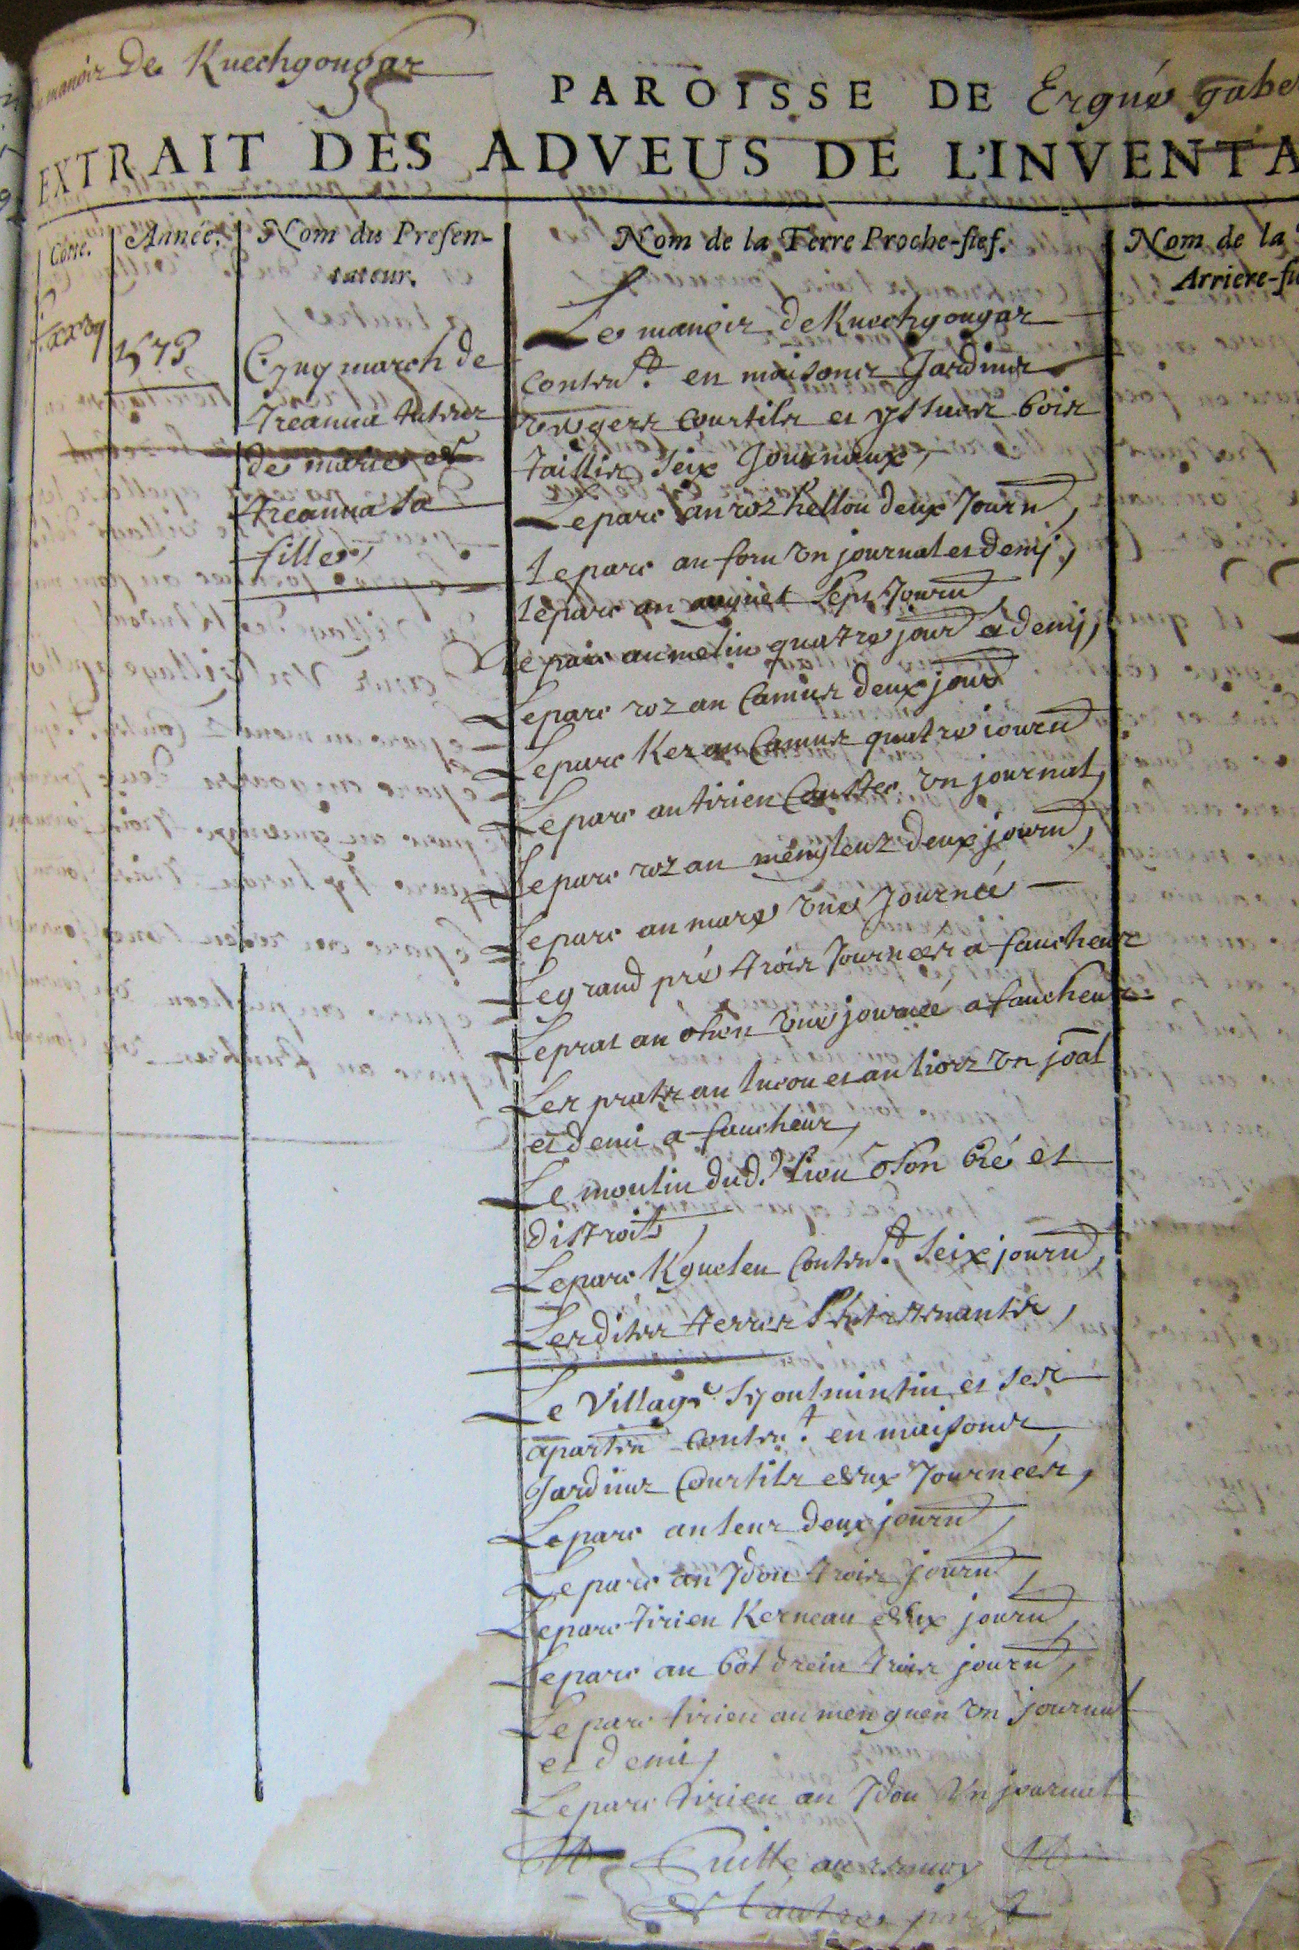 manoir de Knechgougar
PAROISSE DE Ergué gabe
EXTRAIT DES ADVEUS DE L'INVENTA
Cotte.
Année.
Nom du Presen-
tateur.
Nom de la Terre Proche-fief.
Nom de la
Arriere-fi
march de
Treanna tuteur
de marie de
Treanna sa
fille,
Le manoir de Knechgougar
conten.t en maisons Jardins
vergers courtils et yssues bois
taillis seix Journaux,
Le parc an roz hellou deux Journ,
Le parc an forn un journal et demj,
Le parc an sept Journ
Le parc an melin quatre jour et demj,
Le parc roz an Camus deux jour
Le parc Ker an Camus quatre journ
Le parc an tirien un journal,
Le parc roz an menyleuz deux journ,
Le parc an marx une Journée
Le grand pré trois Journees a faucheur
Le prat an ohen une journée a faucheur
Les pratz an lucou et an liorz un joal
et demi a faucheur,
Le moulin dud. lieu o son bié et
distroit,
Le parc Kguelen conten.t seix journ,
Lesdites terres sentretenantes,
Le village Syoulmintin et ses
aparten conten.t en maisons
Jardins Courtils deux Journées,
Le parc an leur deux journ,
Le parc an Ydou trois journ,
Le parc tirien Kerneau deux journ,
Le parc an bot drein trois journ,
Le parc tirien an men guen un journal
et demi,
Le parc tirien an Ydou un journal
Suitte au renvoy